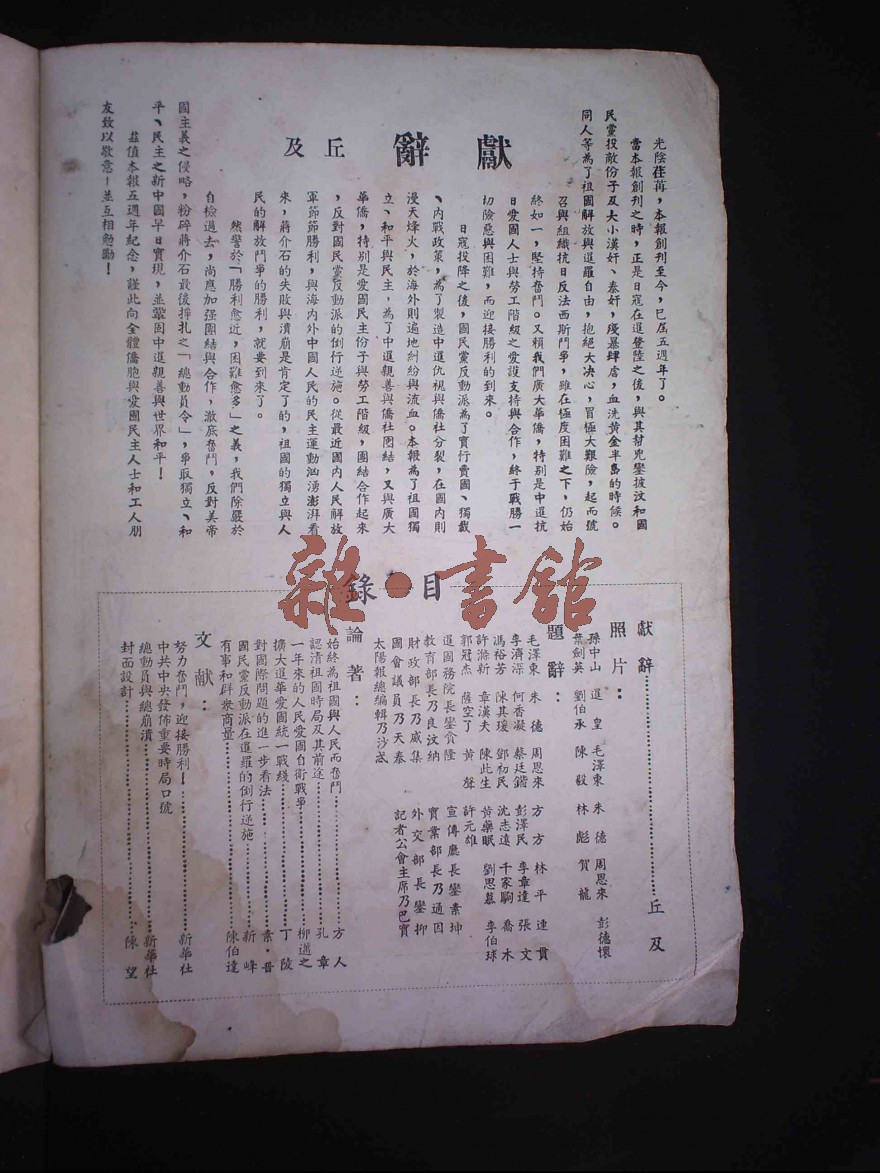 獻辭
丘及
光陰荏苒，本報創刊至今，已屆五週年了。
當本報創刊之時，正是日寇在暹登陸之後，與其幫兇鑾披汶和國
民黨投敵份子及大小漢奸、泰奸，殘暴肆虐，血洗黃金半島的時候。
同人等為了祖國解放與暹羅自由，抱絕大決心，冒極大艱險，起而號
召與組織抗日反法西斯鬥爭，雖在極度困難之下，仍始
終如一，堅持奮鬥。又賴我們廣大華僑，特別是中暹抗
日愛國人士與勞工階級之愛護支持與合作，終于戰勝一
切險惡與困難，而迎接勝利的到來。
日寇投降之後，國民黨反動派為了實行賣國、獨裁
、內戰政策，為了製造中暹仇視與僑社分裂，在國內則
漫天烽火，於海外則遍地糾紛與流血。本報為了祖國獨
立、和平與民主，為了中暹親善與僑社團結，又與廣大
華僑，特別是愛國民主份子與勞工階級，團結合作起來
，反對國民黨反動派的倒行逆施。從最近國内人民解放
軍節節勝利，與海內外中國人民的民主運動汹湧澎湃看
來，蔣介石的失敗與潰崩是肯定了的，祖國的獨立與人
民的解放鬥爭的勝利，就要到來了。
然鑒於「勝利愈近，困難愈多」之義，我們除嚴於
自檢過去，尚應加强團結與合作，澈底奮鬥，反對美帝
國主義之侵略，粉碎蔣介石最後掙扎之「總動員令」，爭取獨立、和
平、民主之新中國早日實現，並鞏固中暹親善與世界和平！
茲值本報五週年紀念，謹此向全體僑胞與愛國民主人士和工人朋
友致以敬意！並互相勉勵！
目錄
獻辭……丘及
照片：
孫中山 暹皇 毛澤東 朱德 周恩來 彭德懷
葉劍英 劉伯承 陳毅 林彪 賀龍
題辭：
毛澤東 朱德 周恩來 方方 林平 連貫
李濟深 何香凝 蔡廷鍇 彭澤民 李章達 張文
馮裕芳 陳其瑗 鄧初民 沈志遠 千家駒 喬木
許滌新 章漢夫 陳此生 黃藥眠 劉思慕 李伯球
郭冠杰 薩空了 黃聲 許元雄
暹國務院長鑾貪隆 宣傳廳長鑾素坤
教育部長乃良汶納 實業部長乃通因
財政部長乃威集 外交部長鑾抑
國會議員乃天泰 記者公會主席乃巴實
太陽報總編輯乃沙忒
論著：
始終為祖國與人民而奮鬥……方人
認清祖國時局及其前途……孔章
一年來的人民愛國自衛戰爭……柳遒之
擴大暹華愛國統一戰綫……丁陵
對國際問題的進一步看法……素·晋
國民黨反動派在暹羅的倒行逆施……新峰
有事和群衆商量……陳伯達
文献：
努力奮鬥，迎接勝利！……新華社
中共中央發佈重要時局口號
總動員與總崩潰……新華社
封面設計……陳望
雜·書館